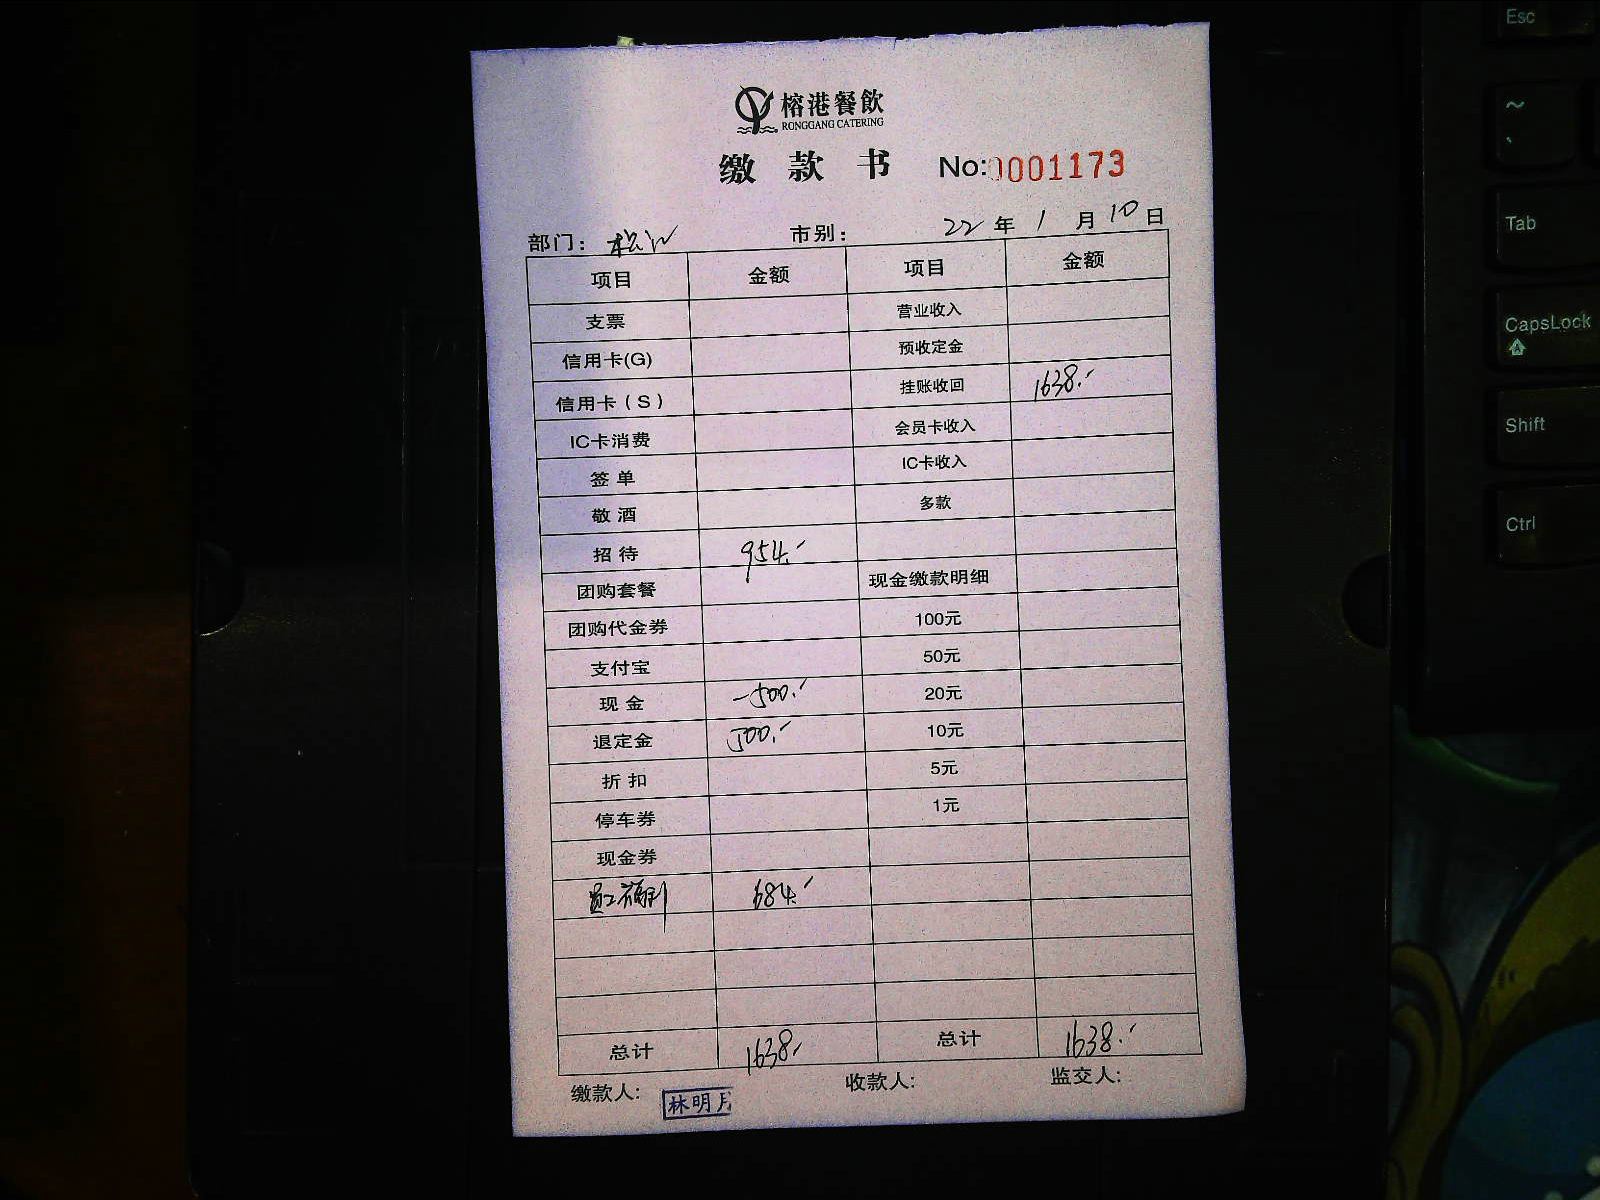 榕港餐飲
RONGGANG CATERING
缴款书 No:0001173
部门: 松江 市别: 22年1月10日
项目 金额 项目 金额
支票 营业收入
信用卡(G) 预收定金
信用卡(S) 挂账收回 1638.-
IC卡消费 会员卡收入
签单 IC卡收入
敬酒 多款
招待 954.-
团购套餐 现金缴款明细
团购代金券 100元
支付宝 50元
现金 -500.- 20元
退定金 500.- 10元
折扣 5元
停车券 1元
现金券
员工福利 684.-
总计 1638.- 总计 1638.-
缴款人: 林明月 收款人: 监交人:
Esc
~
Tab
CapsLock
Shift
Ctrl